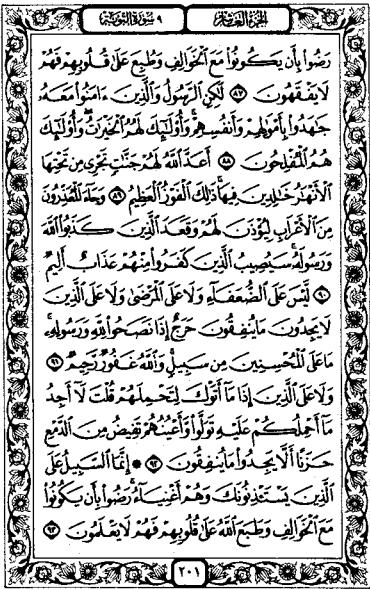 الجزء العاشر ٩ سورة التوبة
رَضُوا۟ بِأَن يَكُونُوا۟ مَعَ ٱلْخَوَالِفِ وَطُبِعَ عَلَىٰ قُلُوبِهِمْ فَهُمْ
لَا يَفْقَهُونَ ٨٧ لَٰكِنِ ٱلرَّسُولُ وَٱلَّذِينَ ءَامَنُوا۟ مَعَهُۥ
جَٰهَدُوا۟ بِأَمْوَٰلِهِمْ وَأَنفُسِهِمْ ۚ وَأُو۟لَٰٓئِكَ لَهُمُ ٱلْخَيْرَٰتُ ۖ وَأُو۟لَٰٓئِكَ
هُمُ ٱلْمُفْلِحُونَ ٨٨ أَعَدَّ ٱللَّهُ لَهُمْ جَنَّٰتٍ تَجْرِى مِن تَحْتِهَا
ٱلْأَنْهَٰرُ خَٰلِدِينَ فِيهَا ۚ ذَٰلِكَ ٱلْفَوْزُ ٱلْعَظِيمُ ٨٩ وَجَآءَ ٱلْمُعَذِّرُونَ
مِنَ ٱلْأَعْرَابِ لِيُؤْذَنَ لَهُمْ وَقَعَدَ ٱلَّذِينَ كَذَبُوا۟ ٱللَّهَ
وَرَسُولَهُۥ ۚ سَيُصِيبُ ٱلَّذِينَ كَفَرُوا۟ مِنْهُمْ عَذَابٌ أَلِيمٌ
٩٠ لَّيْسَ عَلَى ٱلضُّعَفَآءِ وَلَا عَلَى ٱلْمَرْضَىٰ وَلَا عَلَى ٱلَّذِينَ
لَا يَجِدُونَ مَا يُنفِقُونَ حَرَجٌ إِذَا نَصَحُوا۟ لِلَّهِ وَرَسُولِهِۦ ۚ
مَا عَلَى ٱلْمُحْسِنِينَ مِن سَبِيلٍ ۚ وَٱللَّهُ غَفُورٌ رَّحِيمٌ ٩١
وَلَا عَلَى ٱلَّذِينَ إِذَا مَآ أَتَوْكَ لِتَحْمِلَهُمْ قُلْتَ لَآ أَجِدُ
مَآ أَحْمِلُكُمْ عَلَيْهِ تَوَلَّوا۟ وَّأَعْيُنُهُمْ تَفِيضُ مِنَ ٱلدَّمْعِ
حَزَنًا أَلَّا يَجِدُوا۟ مَا يُنفِقُونَ ٩٢ ۞ إِنَّمَا ٱلسَّبِيلُ عَلَى
ٱلَّذِينَ يَسْتَـْٔذِنُونَكَ وَهُمْ أَغْنِيَآءُ ۚ رَضُوا۟ بِأَن يَكُونُوا۟
مَعَ ٱلْخَوَالِفِ وَطَبَعَ ٱللَّهُ عَلَىٰ قُلُوبِهِمْ فَهُمْ لَا يَعْلَمُونَ ٩٣
٢٠١